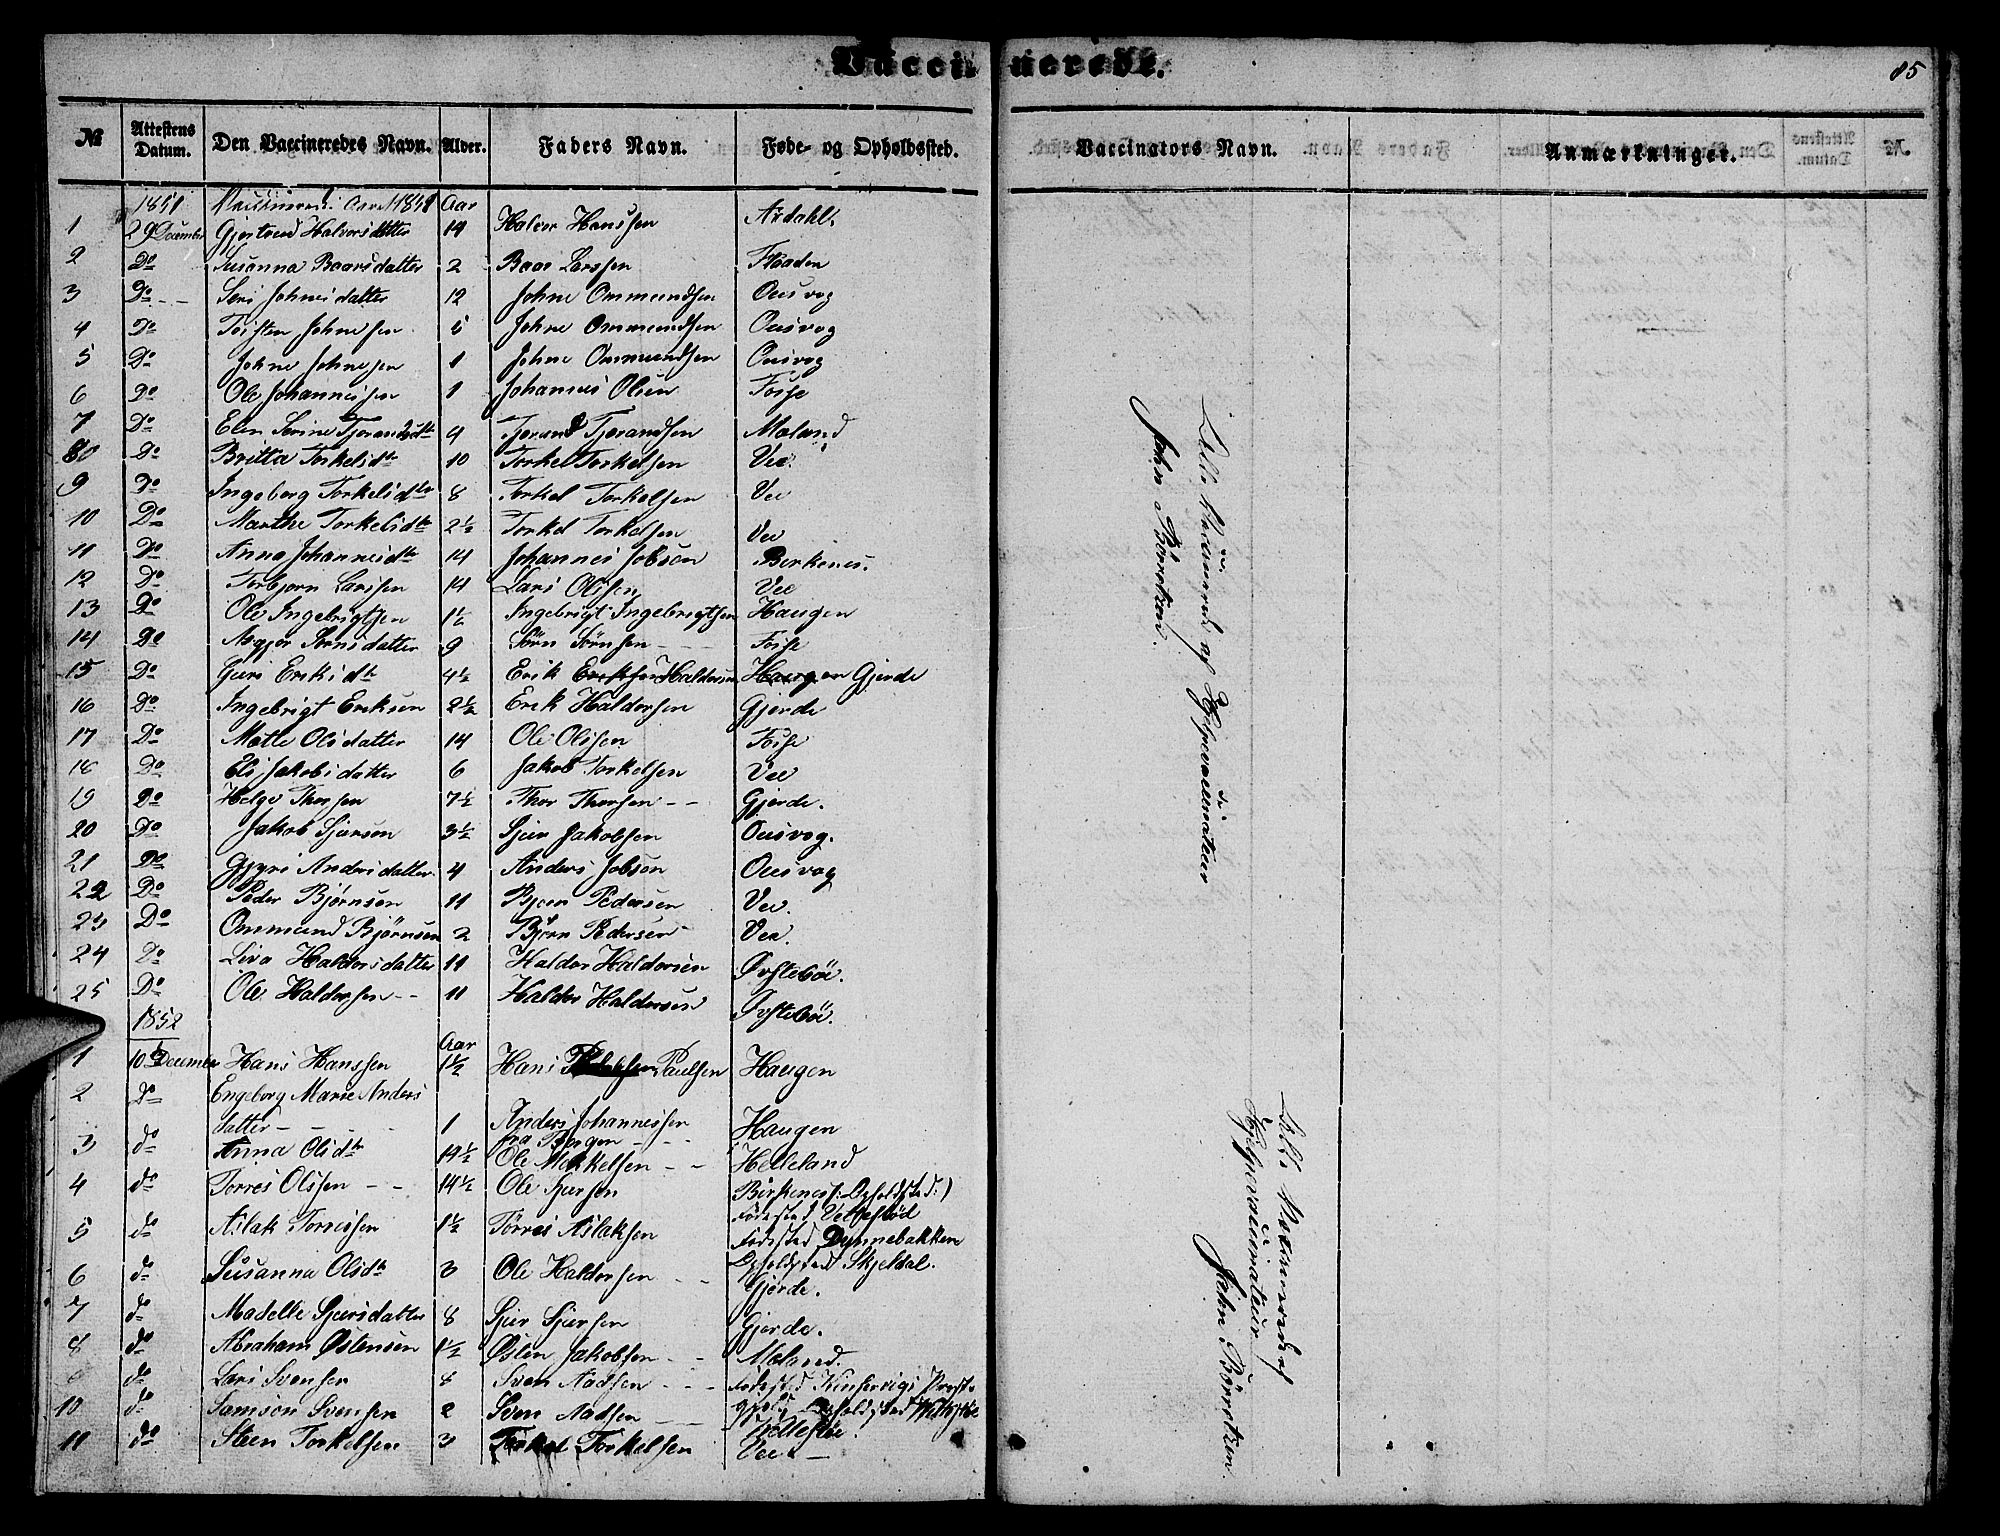 Vaccinerede.
85
№ Attestens Datum. Den Vaccineredes Navn. Alder. Faders Navn. Føde- og Opholdssted. Vaccinators Navn. Anmærkninger.
1851 Vaccinerede i Aaret 1851 Aar
1 29 December Gjertrud Halvorsdatter 14 Halvor Hanssen Aardahl
2 Do Susanna Baarsdatter 2 Baar Larssen Fladen
3 Do Seri Johnesdatter 12 Johne Ommundsen Ousvog
4 Do Torsten Johnesen 5 Johne Ommundsen Ousvog
5 Do Johne Johnesen 1 Johne Ommundsen Ousvog
6 Do Ole Johannessen 1 Johannes Olsen Fosse
7 Do Elen Serine Tjerandsdtr 9 Tjerand Tjerandsen Moland
8 Do Britta Torkelsdtr 10 Torkel Torkelsen Vee.
9 Do Ingeborg Torkelsdtr 8 Torkel Torkelsen Vee
10 Do Marthe Torkelsdtr 2½ Torkel Torkelsen Vee
11 Do Anna Johannesdtr 14 Johannes Jobson Berkenes.
12 Do Torbjorn Larssen 14 Lars Olssen Vee
13 Do Ole Ingebrigtsen 1½ Ingebrigt Ingebrigtsen Haugen
14 Do Asgjer Sørnsdatter 9 Sørn Sørnsen Fosse
15 Do Guri Eriksdtr 4½ Erik Eriksen Haldorsen Haugen Gjerde
16 Do Ingebrigt Eriksen 2½ Erik Haldorsen Gjerde
17 Do Mette Olsdatter 14 Ole Olssen Fosse
18 Do Eli Jakobsdatter 6 Jakob Torkelsen Vee
19 Do Helge Thorsen 7½ Thor Thorsen Gjerde.
20 Do Jakob Sjursen 3½ Sjur Jakobsen Ousvog.
21 Do Gjyri Andersdatter 4 Anders Jobson Ousvog
22 Do Peder Bjørnsen 11 Bjørn Pedersen Vee.
23 Do Ommund Bjørnsen 2 Bjørn Pedersen Vee.
24 Do Liva Haldorsdatter 11 Haldor Haldorsen Øvstebøe.
25 Do Ole Haldorsen 11 Haldor Haldorsen Øvstebøe.
1852 Aar
1 10 December Hans Hanssen 1½ Hans Paulsen Haugen
2 Do Engeborg Marie Anders
datter 1 Anders Johannessen Haugen
fra Bergen
3 do Anna Olsdtr 14½ Ole Mikkelsen Helleland
4 do Torres Olssen 14½ Ole Sjursen Birkenes (: Opholdsted :)
Fødested Vettestød
5 do Aslak Torressen 1½ Tørres Aslaksen Fødested Dynnebakken
Opholdsted Skjeldal.
6 do Susanna Olsdtr 3 Ole Haldorsen Gjerde.
7 do Madelle Sjursdatter 8 Sjur Sjursen Gjerde.
8 do Abraham Østensen 1½ Østen Jakobsen Moland.
9 do Lars Svensen 8 Sven Aadsen Fødested Kinservigs Præste
gjeld Opholdsted
10 do Samson Svensen 2 Sven Aadsen
11 do Steen Torkelsen 3 Torkel Torkelsen Vee
Alle Vaccinerede af Hjelpevaccinateur
John Børretzen.
Alle Vaccinerede af
Hjelpevaccinateur
John Børretzen